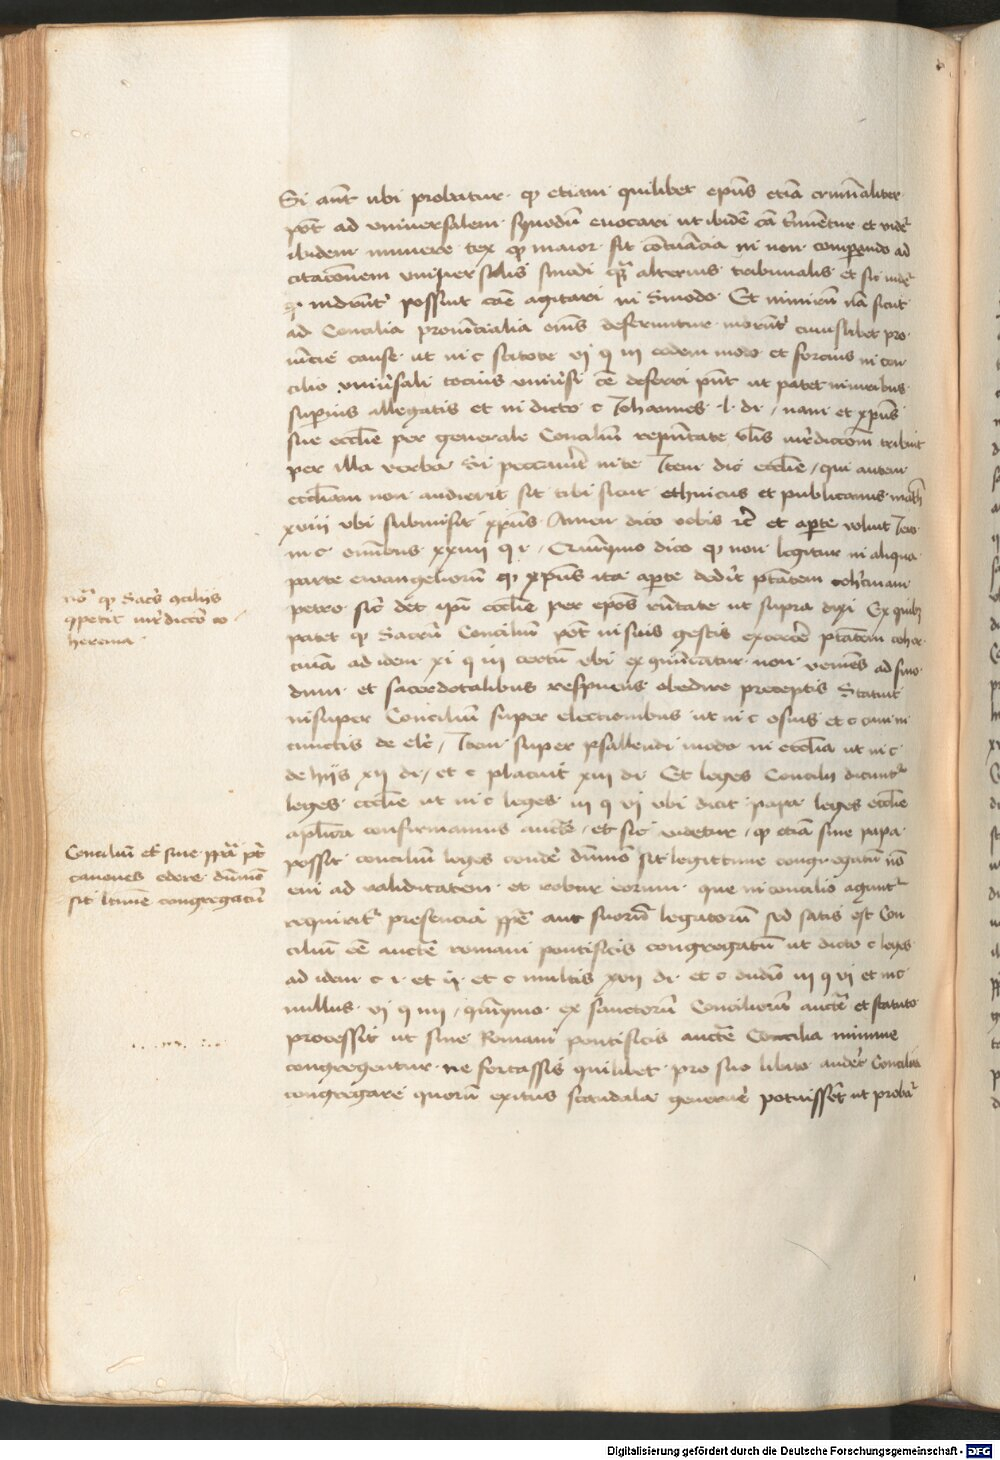 Si aut ubi probatur · quod etiam quilibet epus etiam criminaliter
pot ad universalem synodum evocari ut ibidem ca terminetur et videtur
ibidem innuere tex quod maior sit contumacia in non comparendo ad
citationem universalis sinodi quam alterius tribunalis et sic
possint cause agitari in Sinodo Et nimirum nam sicut
ad Concilia provincialia omnes deferuntur cuiuslibet pro
vincie cause ut in c scitote vi q iii eodem modo et forcius in con
cilio universali tocius universi cause deferri possunt ut patet in iuribus
superius allegatis et in dicto c Johannes l di / nam et xpus
sue ecclesie per generale Concilium representate iurisdictionem tribuit
per illa verba Si peccaverit in te Item dic ecclesie / qui autem
ecclesiam non audierit sit tibi sicut ethnicus et publicanus math
xviii ubi subiungit xpus Amen dico vobis etc et aperte voluit
in c omnibus xxiiii q i / Quinymo dico quod non legitur in aliqua
parte ewangeliorum quod xpus ita aperte dederit potestatem cohercivam
petro sicut det ipi ecclesie per epos representate ut supra dixi Ex quibus
patet quod Sacrum Concilium potest in suis gestis exercere potestatem coher
civam ad idem xi q iii certum ubi excommunicatur non veniens ad sino
dum · et sacerdotalibus respuens obedire preceptis Statuit
insuper Concilium super electionibus ut in c osius et c cum in
cunctis de elec / Item super psallendi modo in ecclesia ut in c
de hiis xii di / et c placuit xiii di Et leges Concilii dicuntur
leges ecclesie ut in c leges iii q vi ubi dicit papa leges ecclesie
aplica confirmamus aucte / et sic videtur / quod etiam sine papa
possit concilium leges condere dummodo sit legittime congregatum non
eni ad validitatem et robur eorum que in concilio aguntur
requiritur presencia pape aut suorum legatorum sed satis est Con
cilium esse aucte romani pontificis congregatum ut dicto c leges
ad idem c i et ii et c multis xvii di et c iii q vi et in c
nullus vi q iiii / quinymo ex sanctorum Conciliorum aucte et statuto
processit ut sine Romani pontificis aucte Concilia minime
congregentur ne fortassis quilibet pro suo libito auderet Concilia
congregare quorum exitus scandala generare potuisset ut probatur
quod Sacris conciliis
competit iurisdictio co
herciva
Concilium etiam sine papa potest
canones edere dummodo
sit legitime congregatum
Digitalisierung gefördert durch die Deutsche Forschungsgemeinschaft - DFG